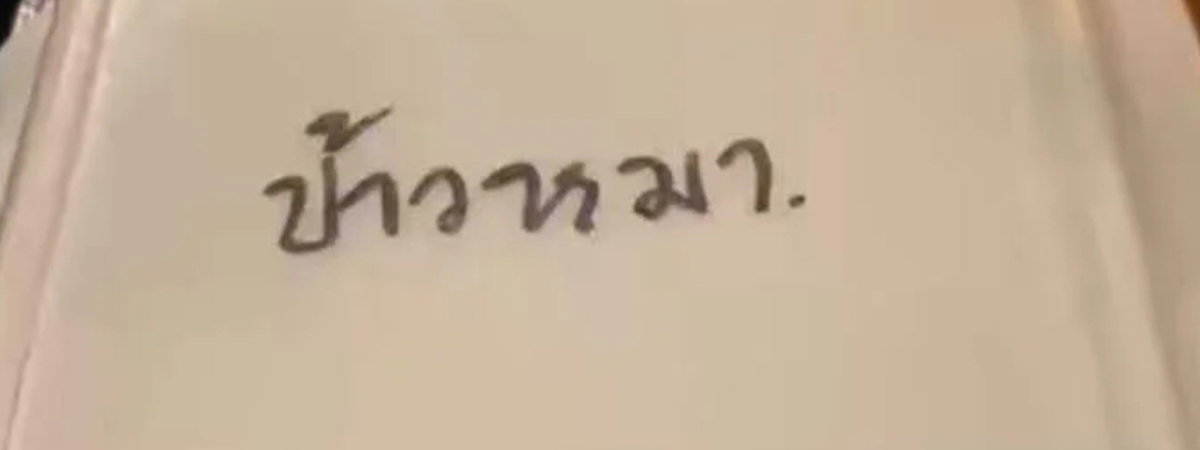 ข้าวหมา.